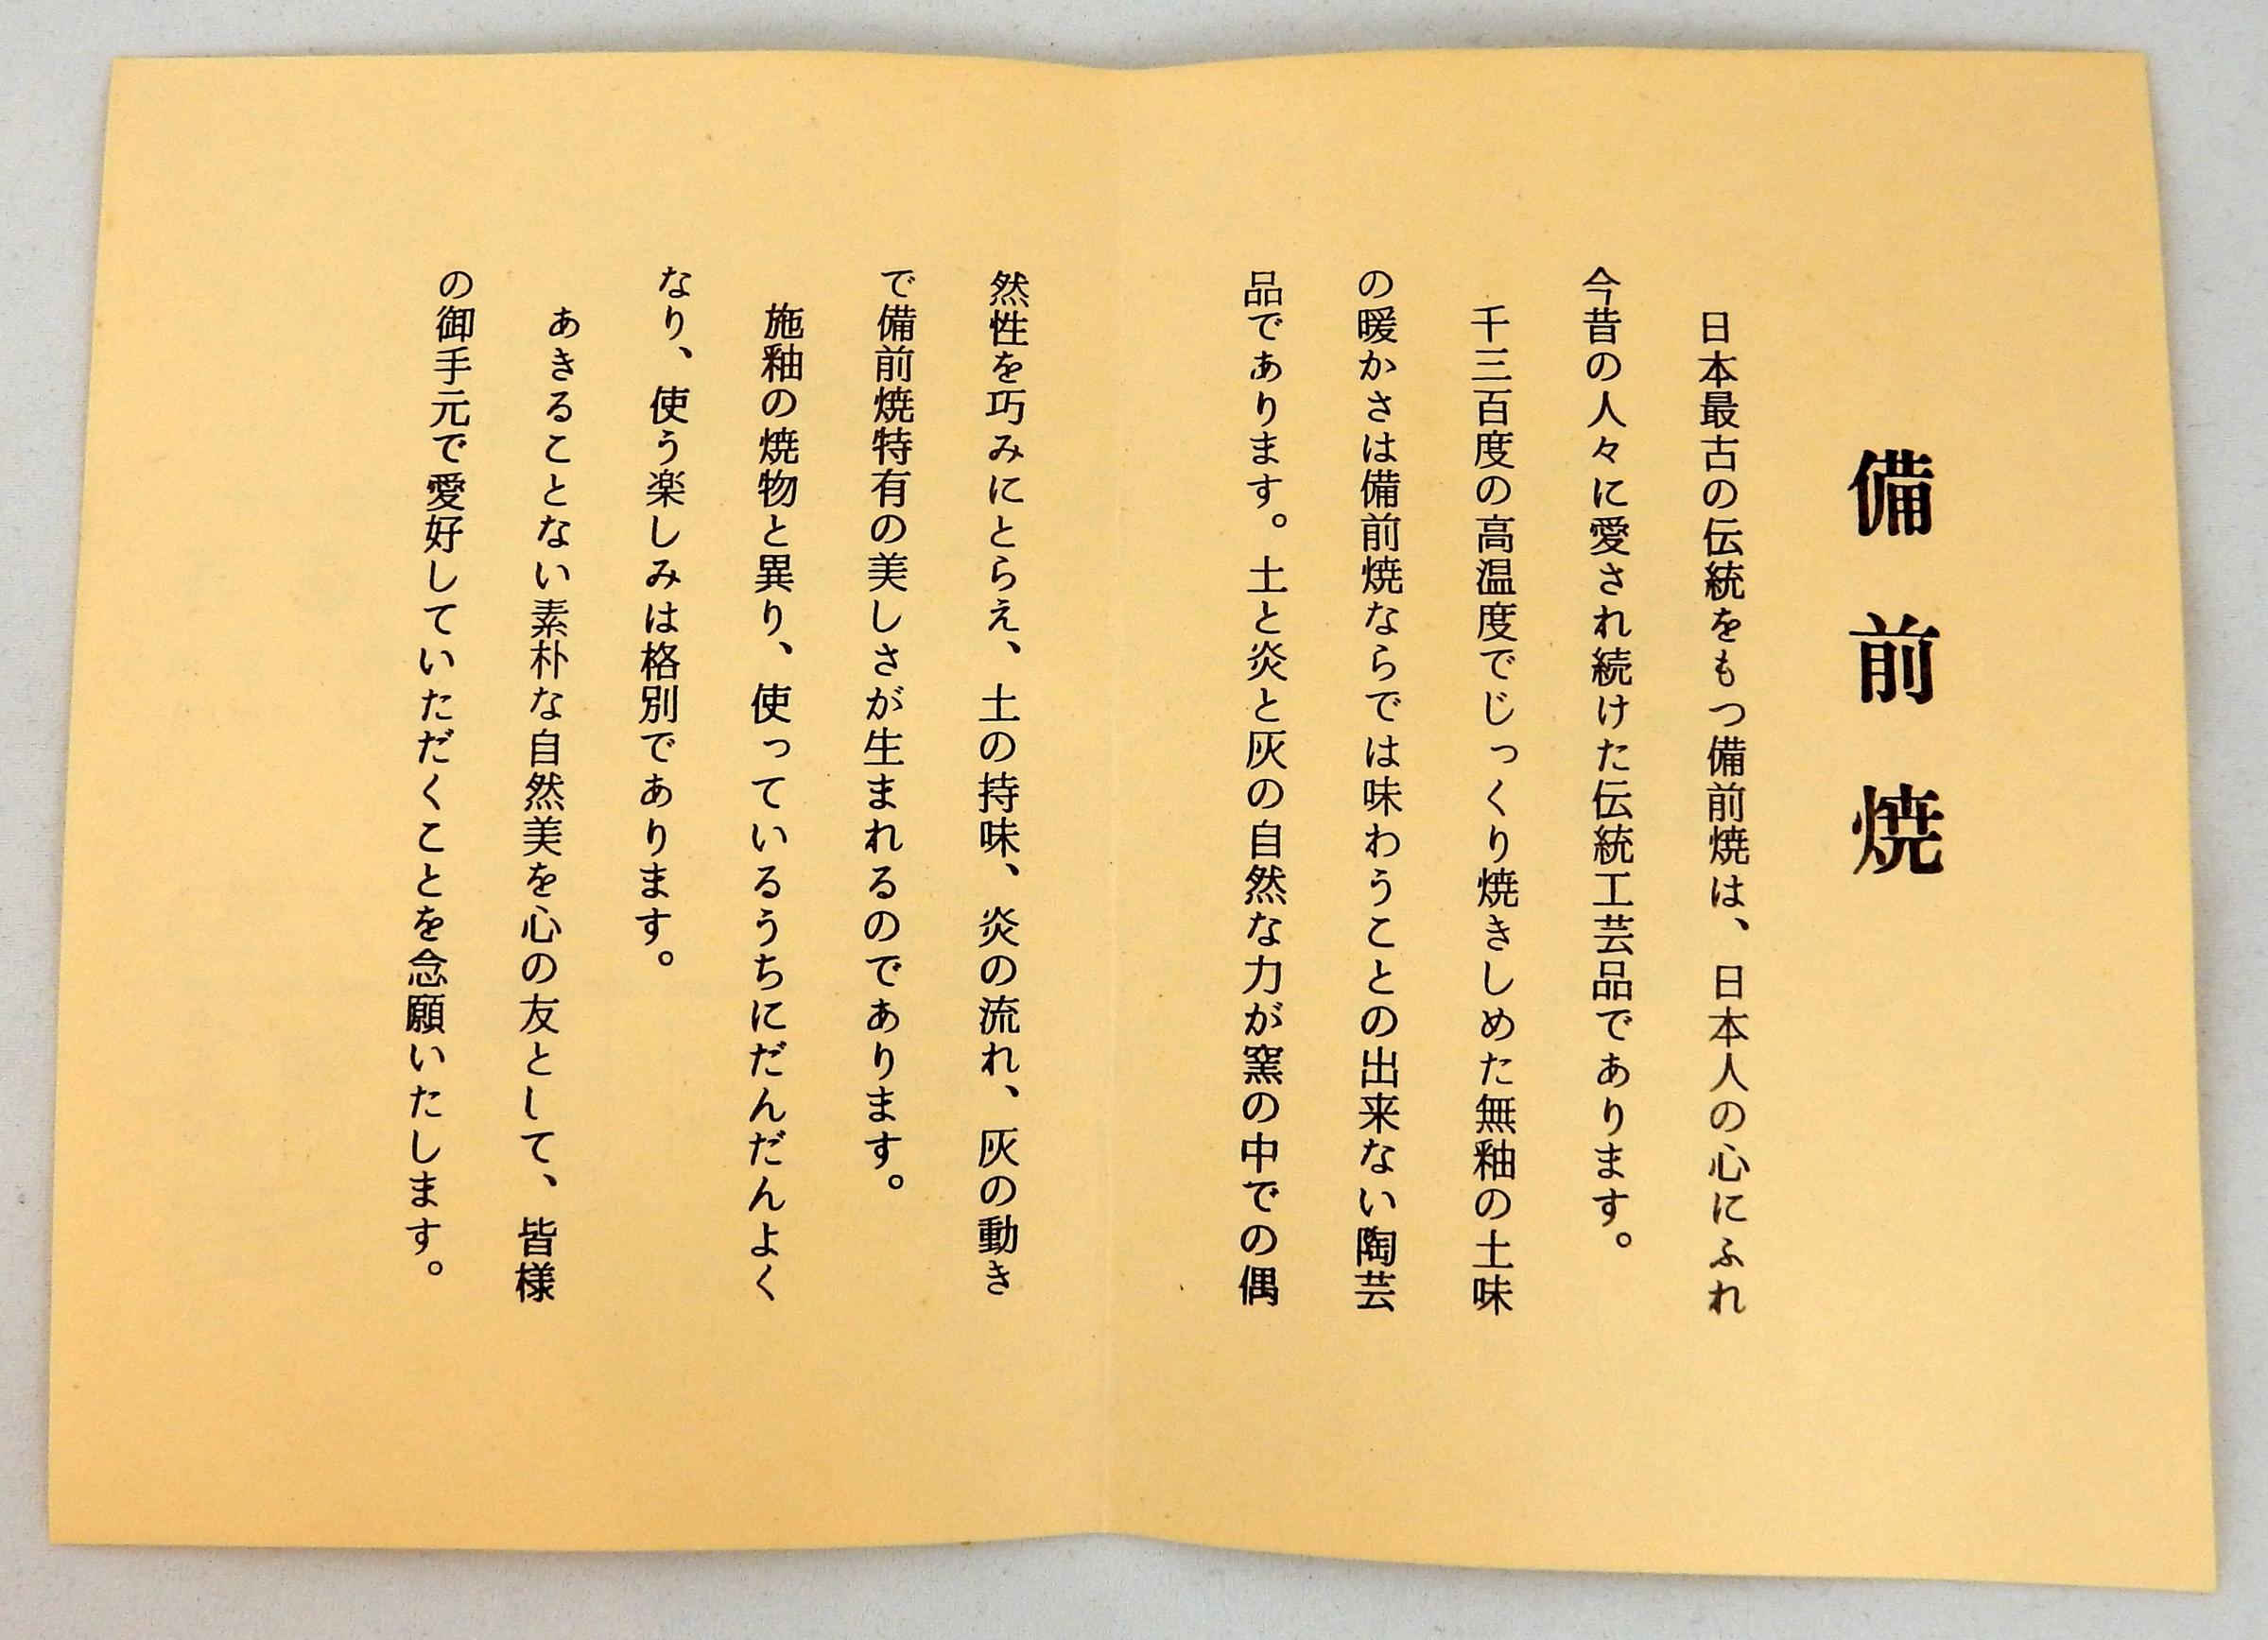 備前焼
日本最古の伝統をもつ備前焼は、日本人の心にふれ
今昔の人々に愛され続けた伝統工芸品であります。
千三百度の高温度でじっくり焼きしめた無釉の土味
の暖かさは備前焼ならでは味わうことの出来ない陶芸
品であります。土と炎と灰の自然な力が窯の中での偶
然性を巧みにとらえ、土の持味、炎の流れ、灰の動き
で備前焼特有の美しさが生まれるのであります。
施釉の焼物と異り、使っているうちにだんだんよく
なり、使う楽しみは格別であります。
あきることない素朴な自然美を心の友として、皆様
の御手元で愛好していただくことを念願いたします。